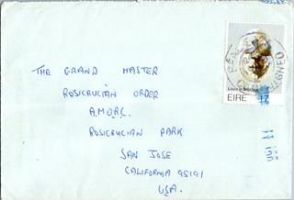 THE GRAND MASTER
ROSICRUCIAN ORDER
A.M.O.R.C.
ROSICRUCIAN PARK
SAN JOSE
CALIFORNIA 95191
U.S.A.
ÉIRE